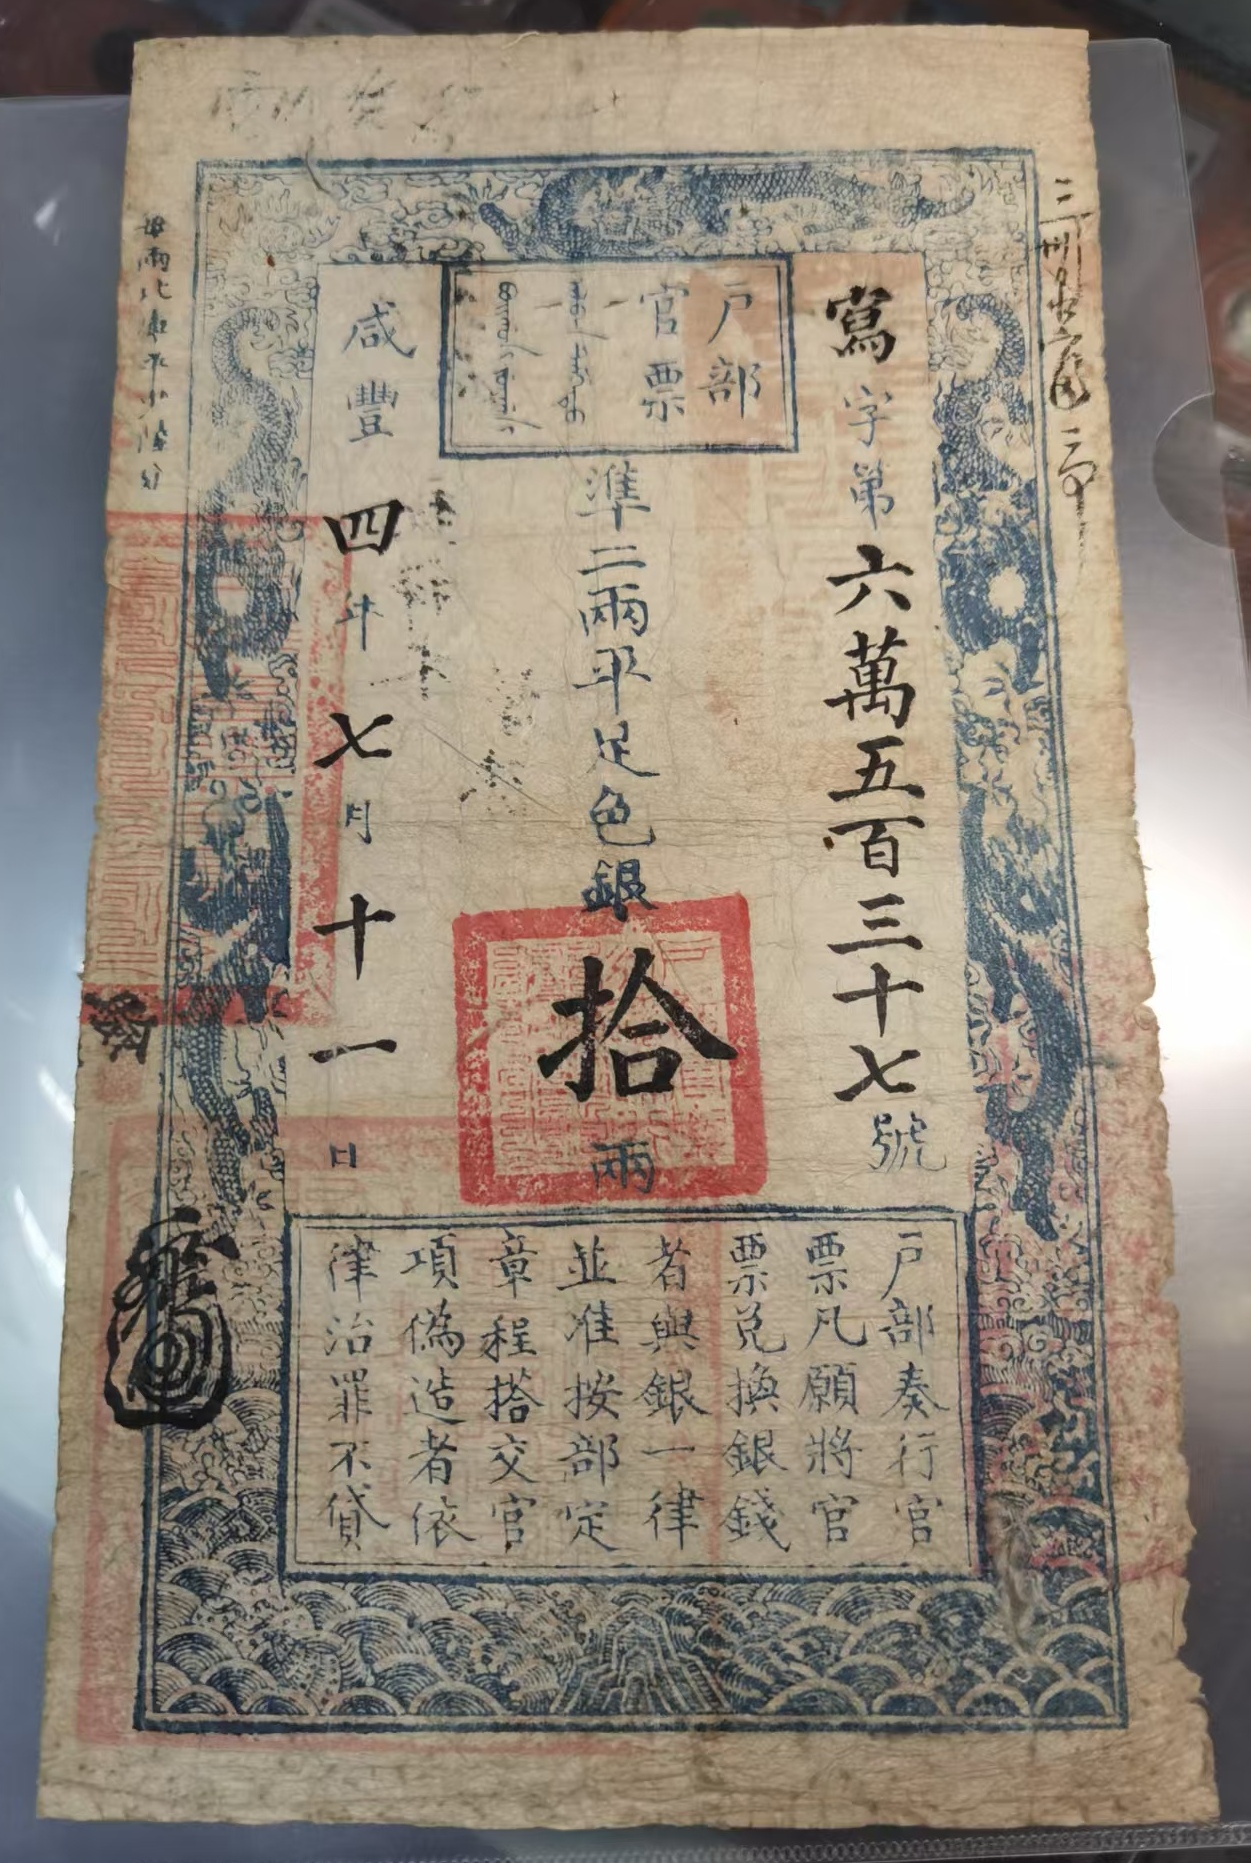 戶部
官票
寫字第六萬五百三十七號
準二兩平足色銀拾兩
咸豐四年七月十一日
戶部奏行官
票凡願將官
票兌換銀錢
者與銀一律
並准按部定
章程搭交官
項偽造者依
律治罪不貸
每兩比庫平小陸分